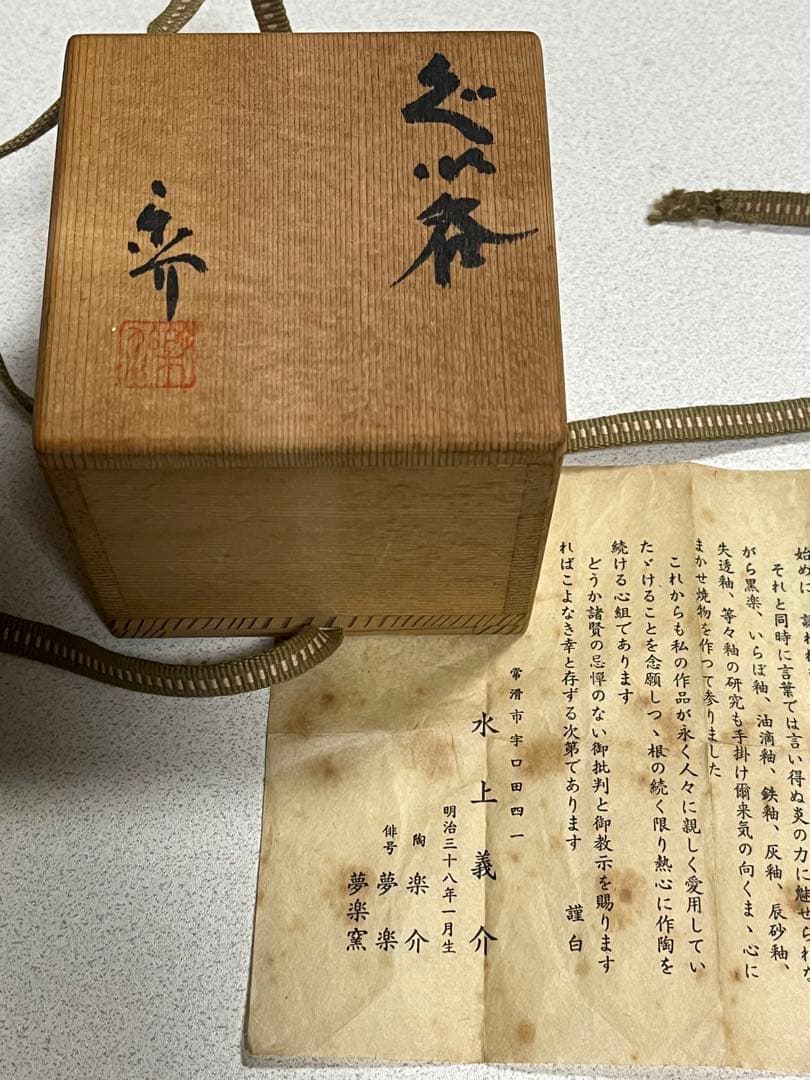 ぐい呑
楽介
始めに
それと同時に言葉では言い得ぬ炎の力に魅せられな
がら黒楽、いらぼ釉、油滴釉、鉄釉、灰釉、辰砂釉、
失透釉、等々釉の研究も手掛け爾来気の向くまゝ心に
まかせ焼物を作つて参りました
これからも私の作品が永く人々に親しく愛用してい
たゞけることを念願しつゝ根の続く限り熱心に作陶を
続ける心組であります
どうか諸賢の忌憚のない御批判と御教示を賜ります
ればこよなき幸と存ずる次第であります 謹白
常滑市字口田四一
水上義介
明治三十八年一月生
陶 楽介
俳号 夢楽
夢楽窯